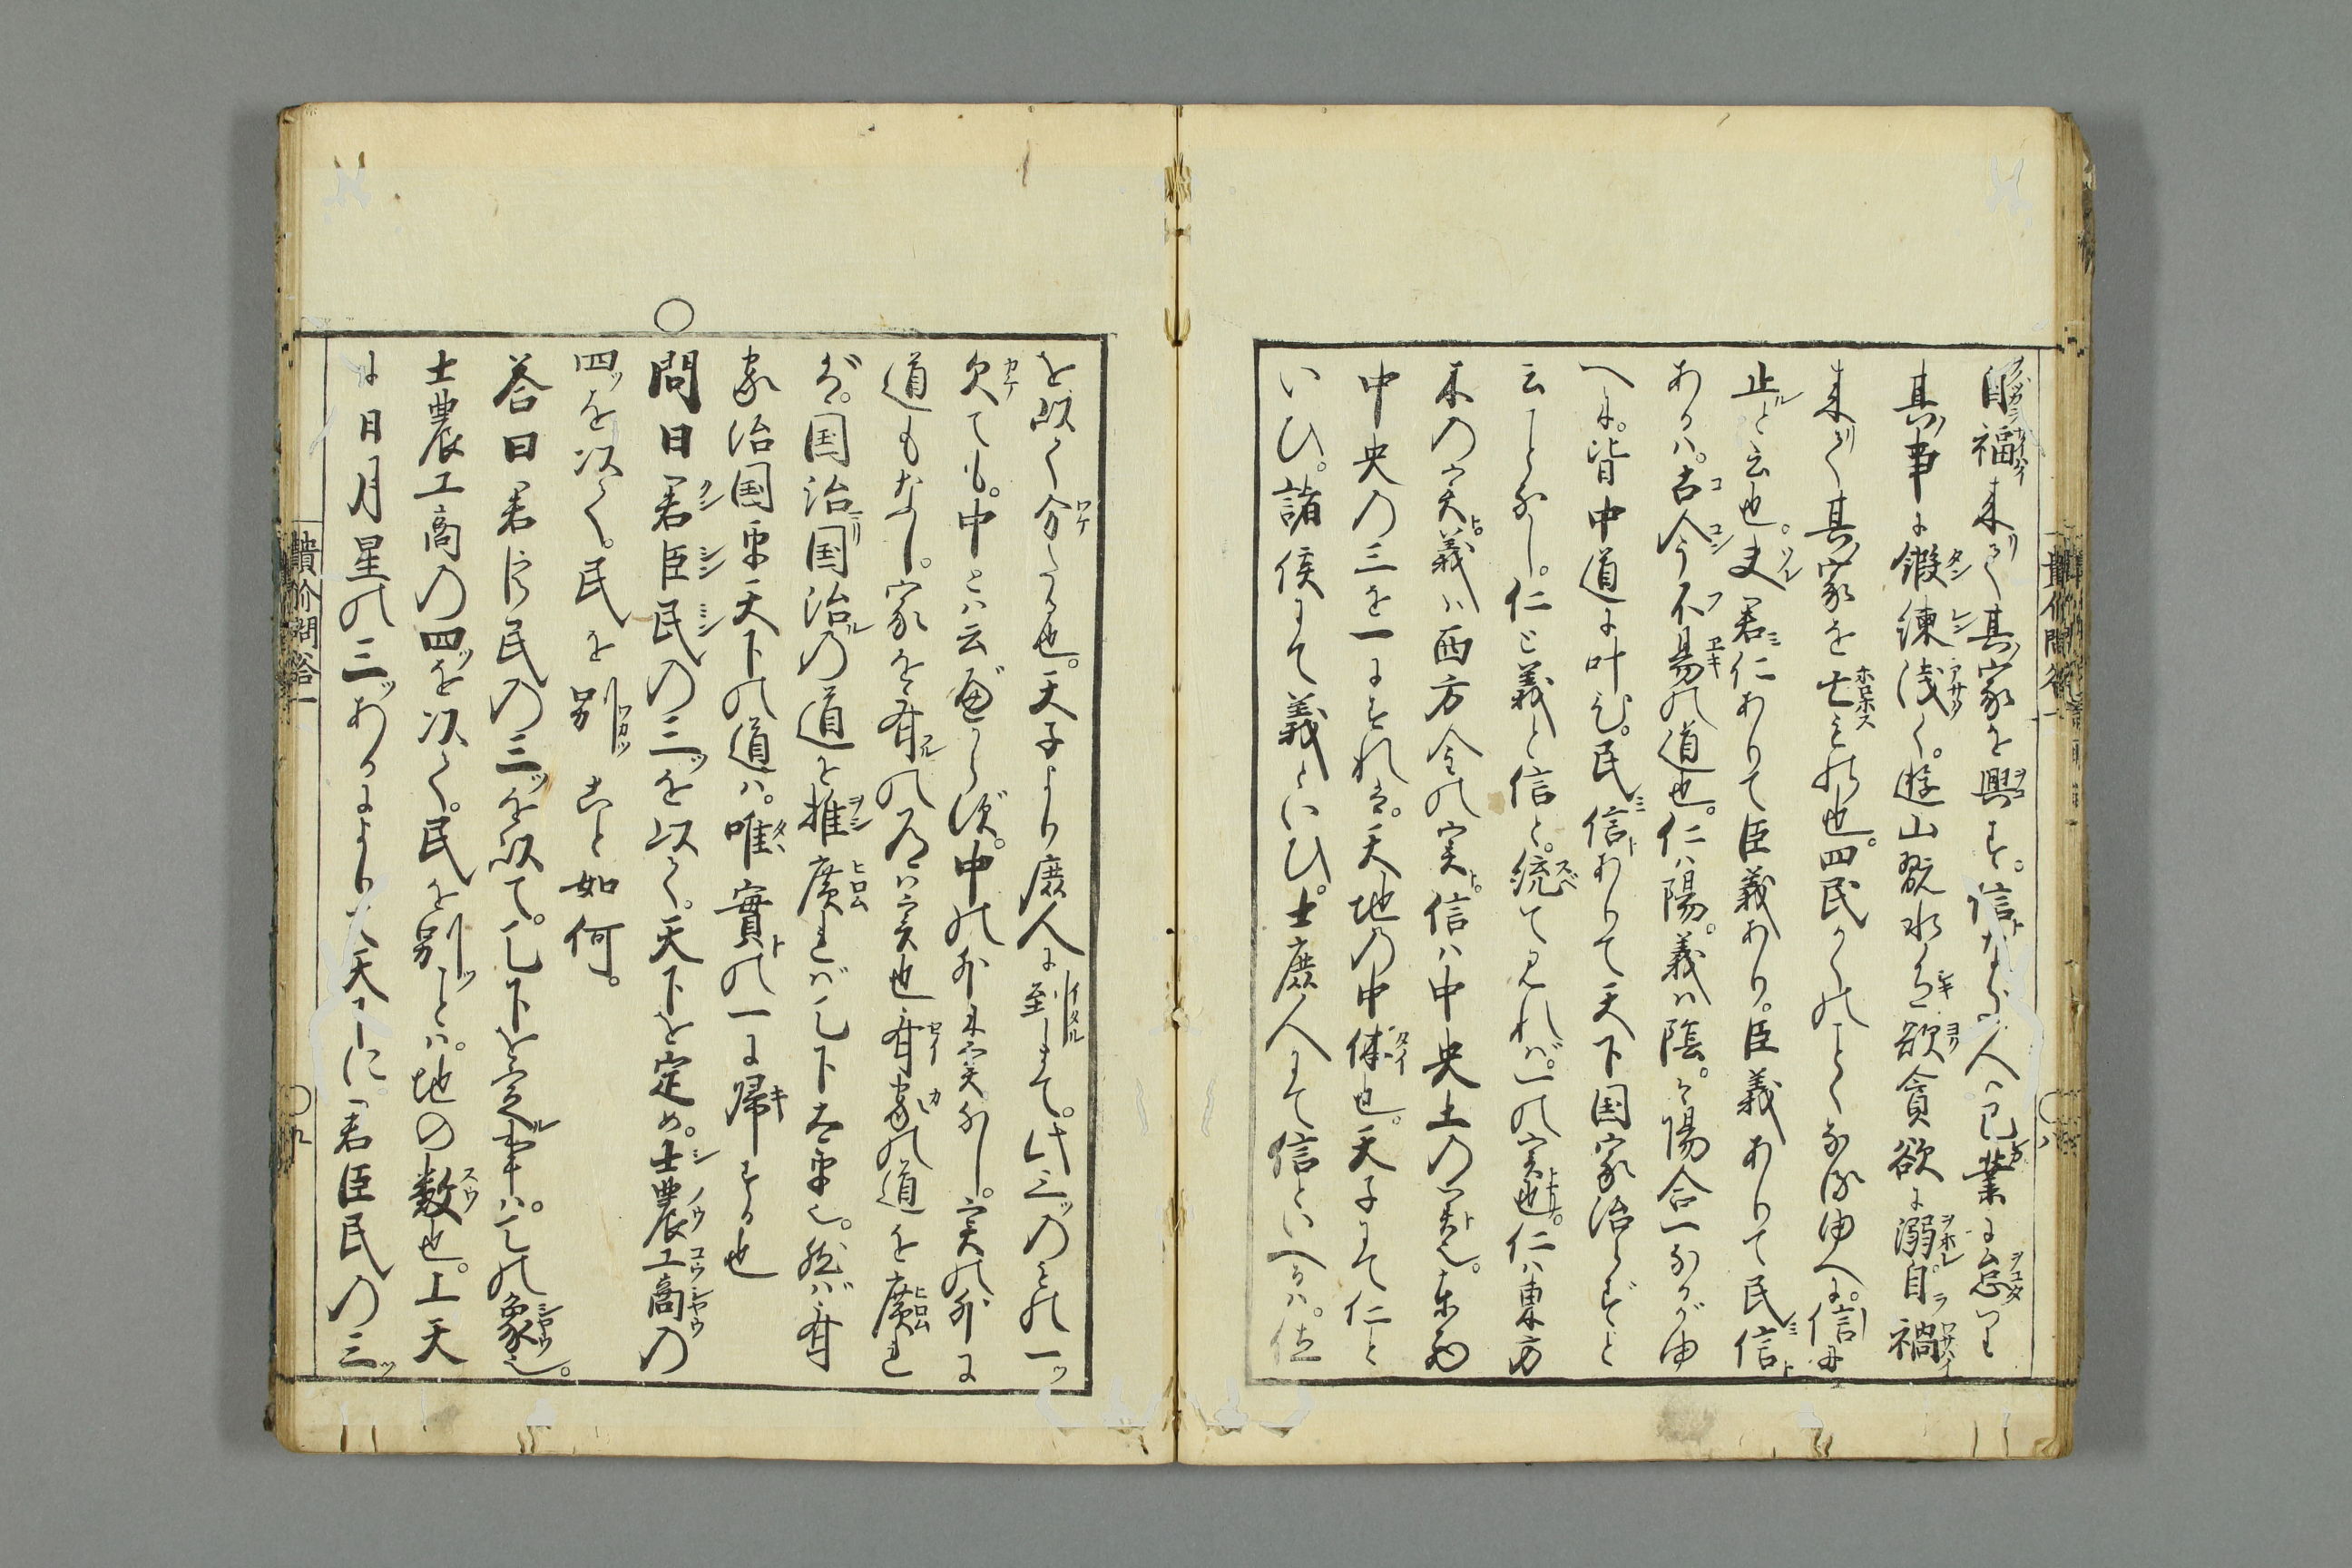 自福来りて其家を興す。信なき人ハ己業に怠りて
其事に鍛練浅く。遊山翫水色欲貪欲に溺自禍
来りて其家を亡ものも也。四民かくのことくなる故ゆへに。信に
止ると云也。夫君仁ありて臣義あり。臣義ありて民信
あるハ。古今不易の道也。仁ハ陽。義ハ陰。陰陽合一なるがゆ
へに。皆中道に叶ひ。民信ありて天下国家治らずと
云ことなし。仁と義と信と。統て見れバ。一の実也。仁ハ東方
木の実義ハ西方金の実。信ハ中央土の実也。東西
中央の三を一にすれバ。天地の中体也。天子にて仁と
いひ。諸侯にて義といひ。士庶人にて信といへるハ。位
貴价問答一
〇八
を以て分たる也。天子より庶人に到まて。此三ツのもの一ツ
欠ても。中とハ云べからず。中の外に実なし。実の外に
道もなし。家を斉るの道ハ実也斉家の道を廣れ
バ。国治国治るの道を推廣れバ天下太平也。然バ斉
家治国平天下の道ハ。唯實の一に帰する也
〇
問曰君臣民の三ツを以て。天下を定め。士農工商の
四ツを以て。民を別こと如何。
答曰君臣民の三ツを以て。天下を定る事ハ。天の象也。
士農工商の四ツを以て。民を別ことハ。地の数也。上天
に日月星の三ツあるによりて天下に。君臣民の三ツ
貴价問答一
〇九